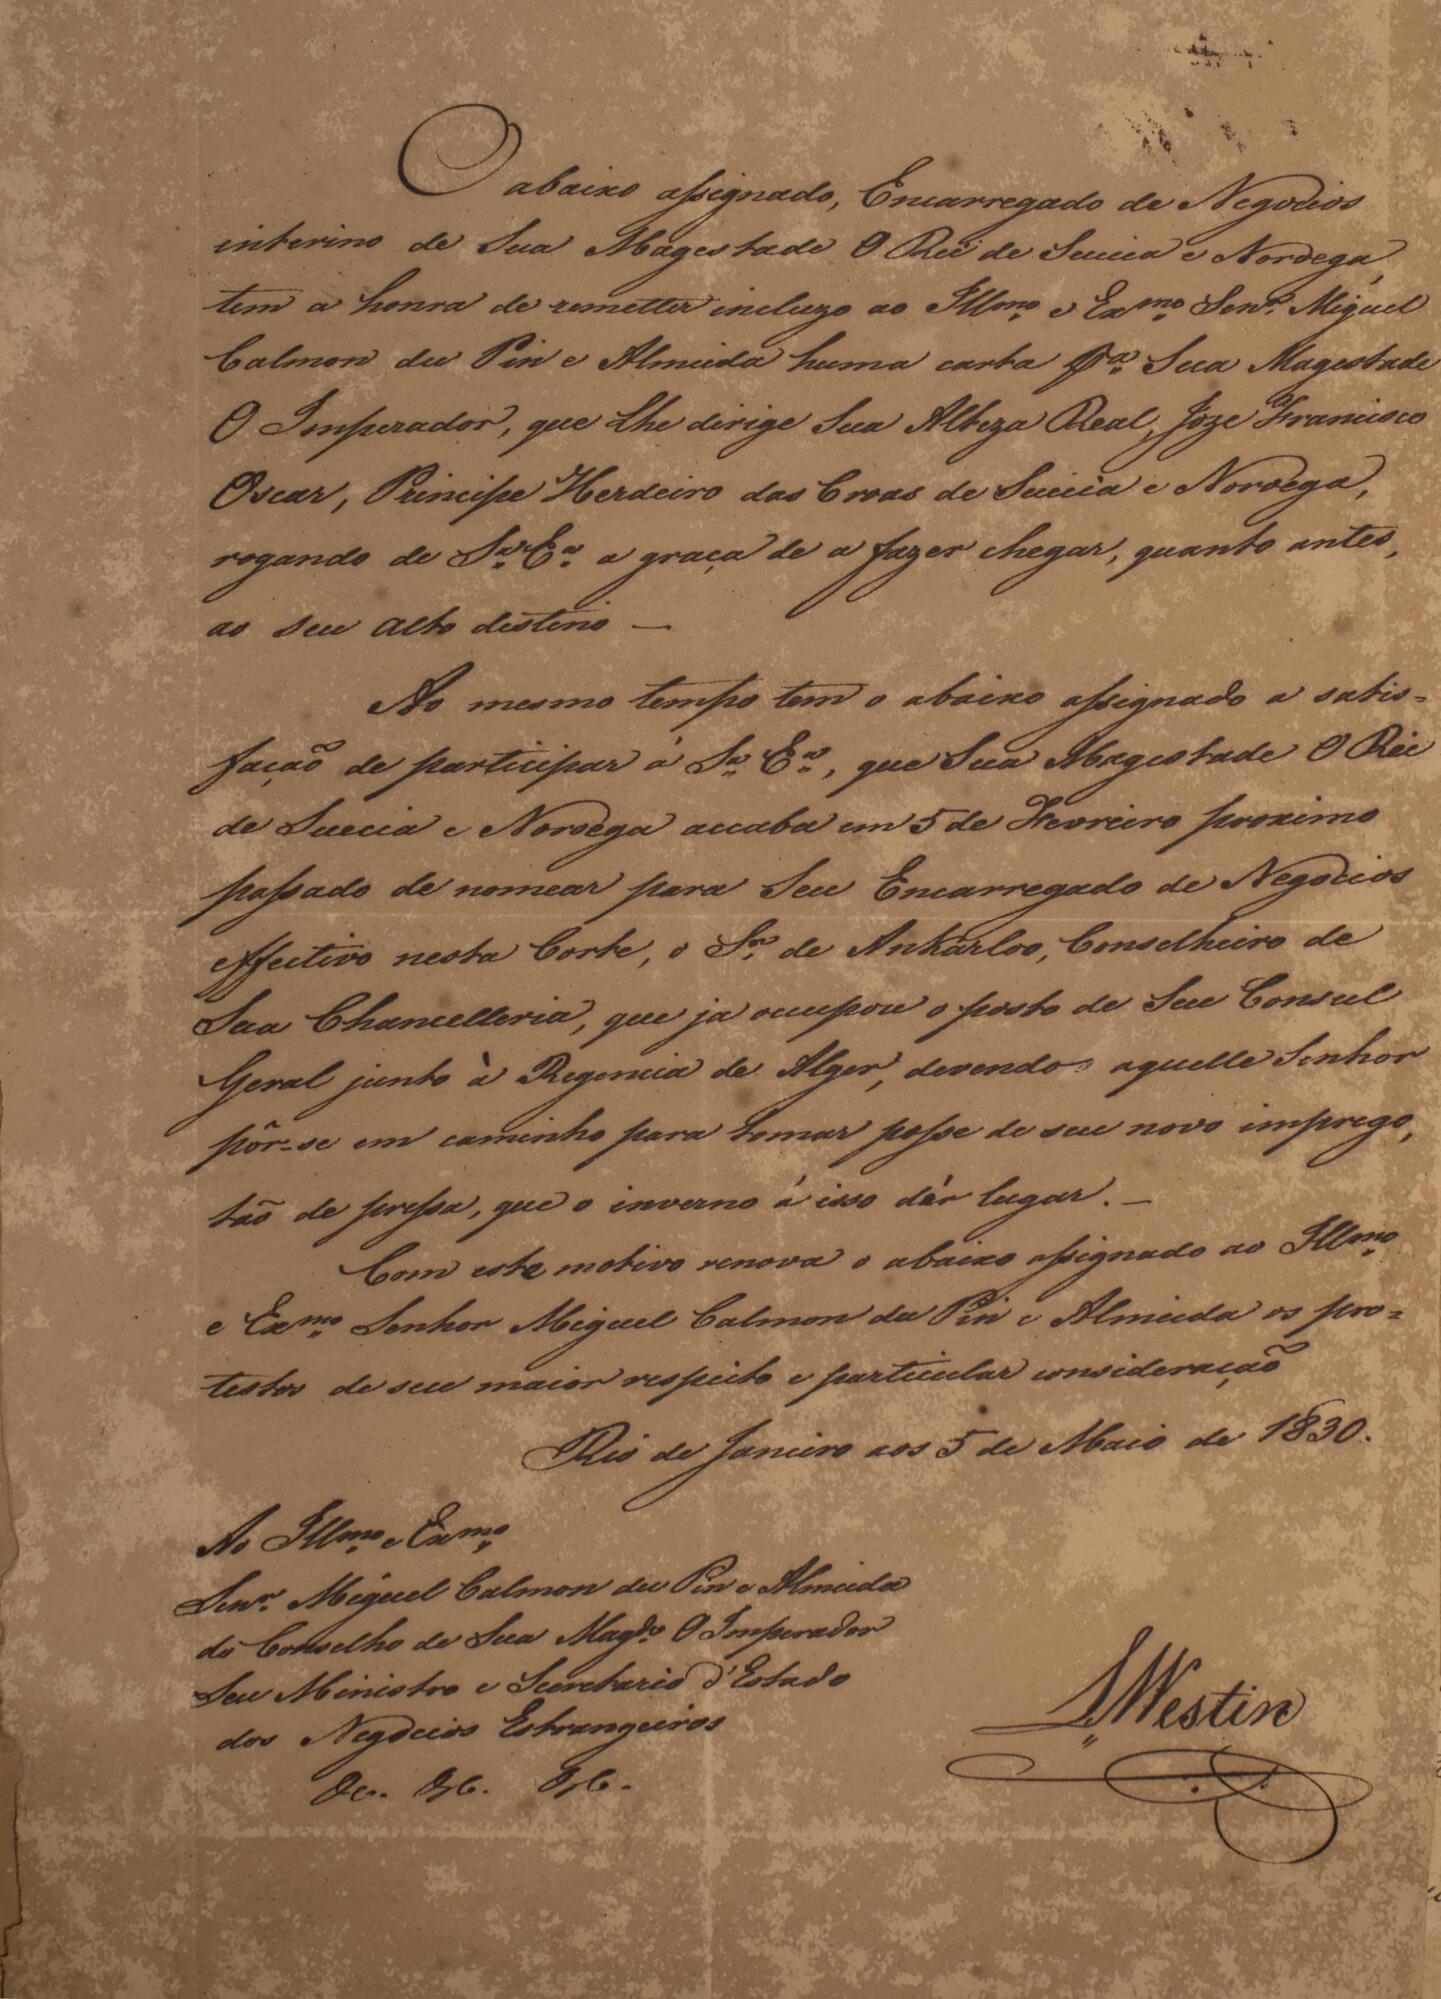 O abaixo assignado, Encarregado de Negocios
interino de Sua Magestade O Rei de Suecia e Norvega,
tem a honra de remetter incluzo ao Illmo. e Exmo. Senr. Miguel
Calmon du Pin e Almeida huma carta pa. Sua Magestade
O Imperador, que Lhe dirige Sua Alteza Real, Joze Francisco
Oscar, Principe Herdeiro das Croas de Suecia e Norvega,
rogando de Sa. Ea. a graça de a fazer chegar, quanto antes,
ao seu alto destino —
Ao mesmo tempo tem o abaixo assignado a satis=
façaõ de participar á Sa. Ea., que Sua Magestade O Rei
de Suecia e Norvega accaba em 5 de Fevreiro proximo
passado de nomear para Seu Encarregado de Negocios
effectivo nesta Corte, o Sr. de Ankarloo, Conselheiro de
Sua Chancelleria, que ja occupou o posto de Seu Consul
Geral junto à Regencia de Alger, devendo aquelle Senhor
pôr-se em caminho para tomar posse de seu novo imprego,
tão de pressa, que o inverno á isso dér lugar. —
Com este motivo renova o abaixo assignado ao Illmo.
e Exmo. Senhor Miguel Calmon du Pin e Almeida os pro=
testos de seu maior respeito e particular consideraçaõ
Rio de Janeiro aos 5 de Maio de 1830.
Ao Illmo. e Exmo.
Senr. Miguel Calmon du Pin e Almeida
do Conselho de Sua Magde. O Imperador
Seu Ministro e Secretario d'Estado
dos Negocios Estrangeiros
&c. &c. &c.
L Westin